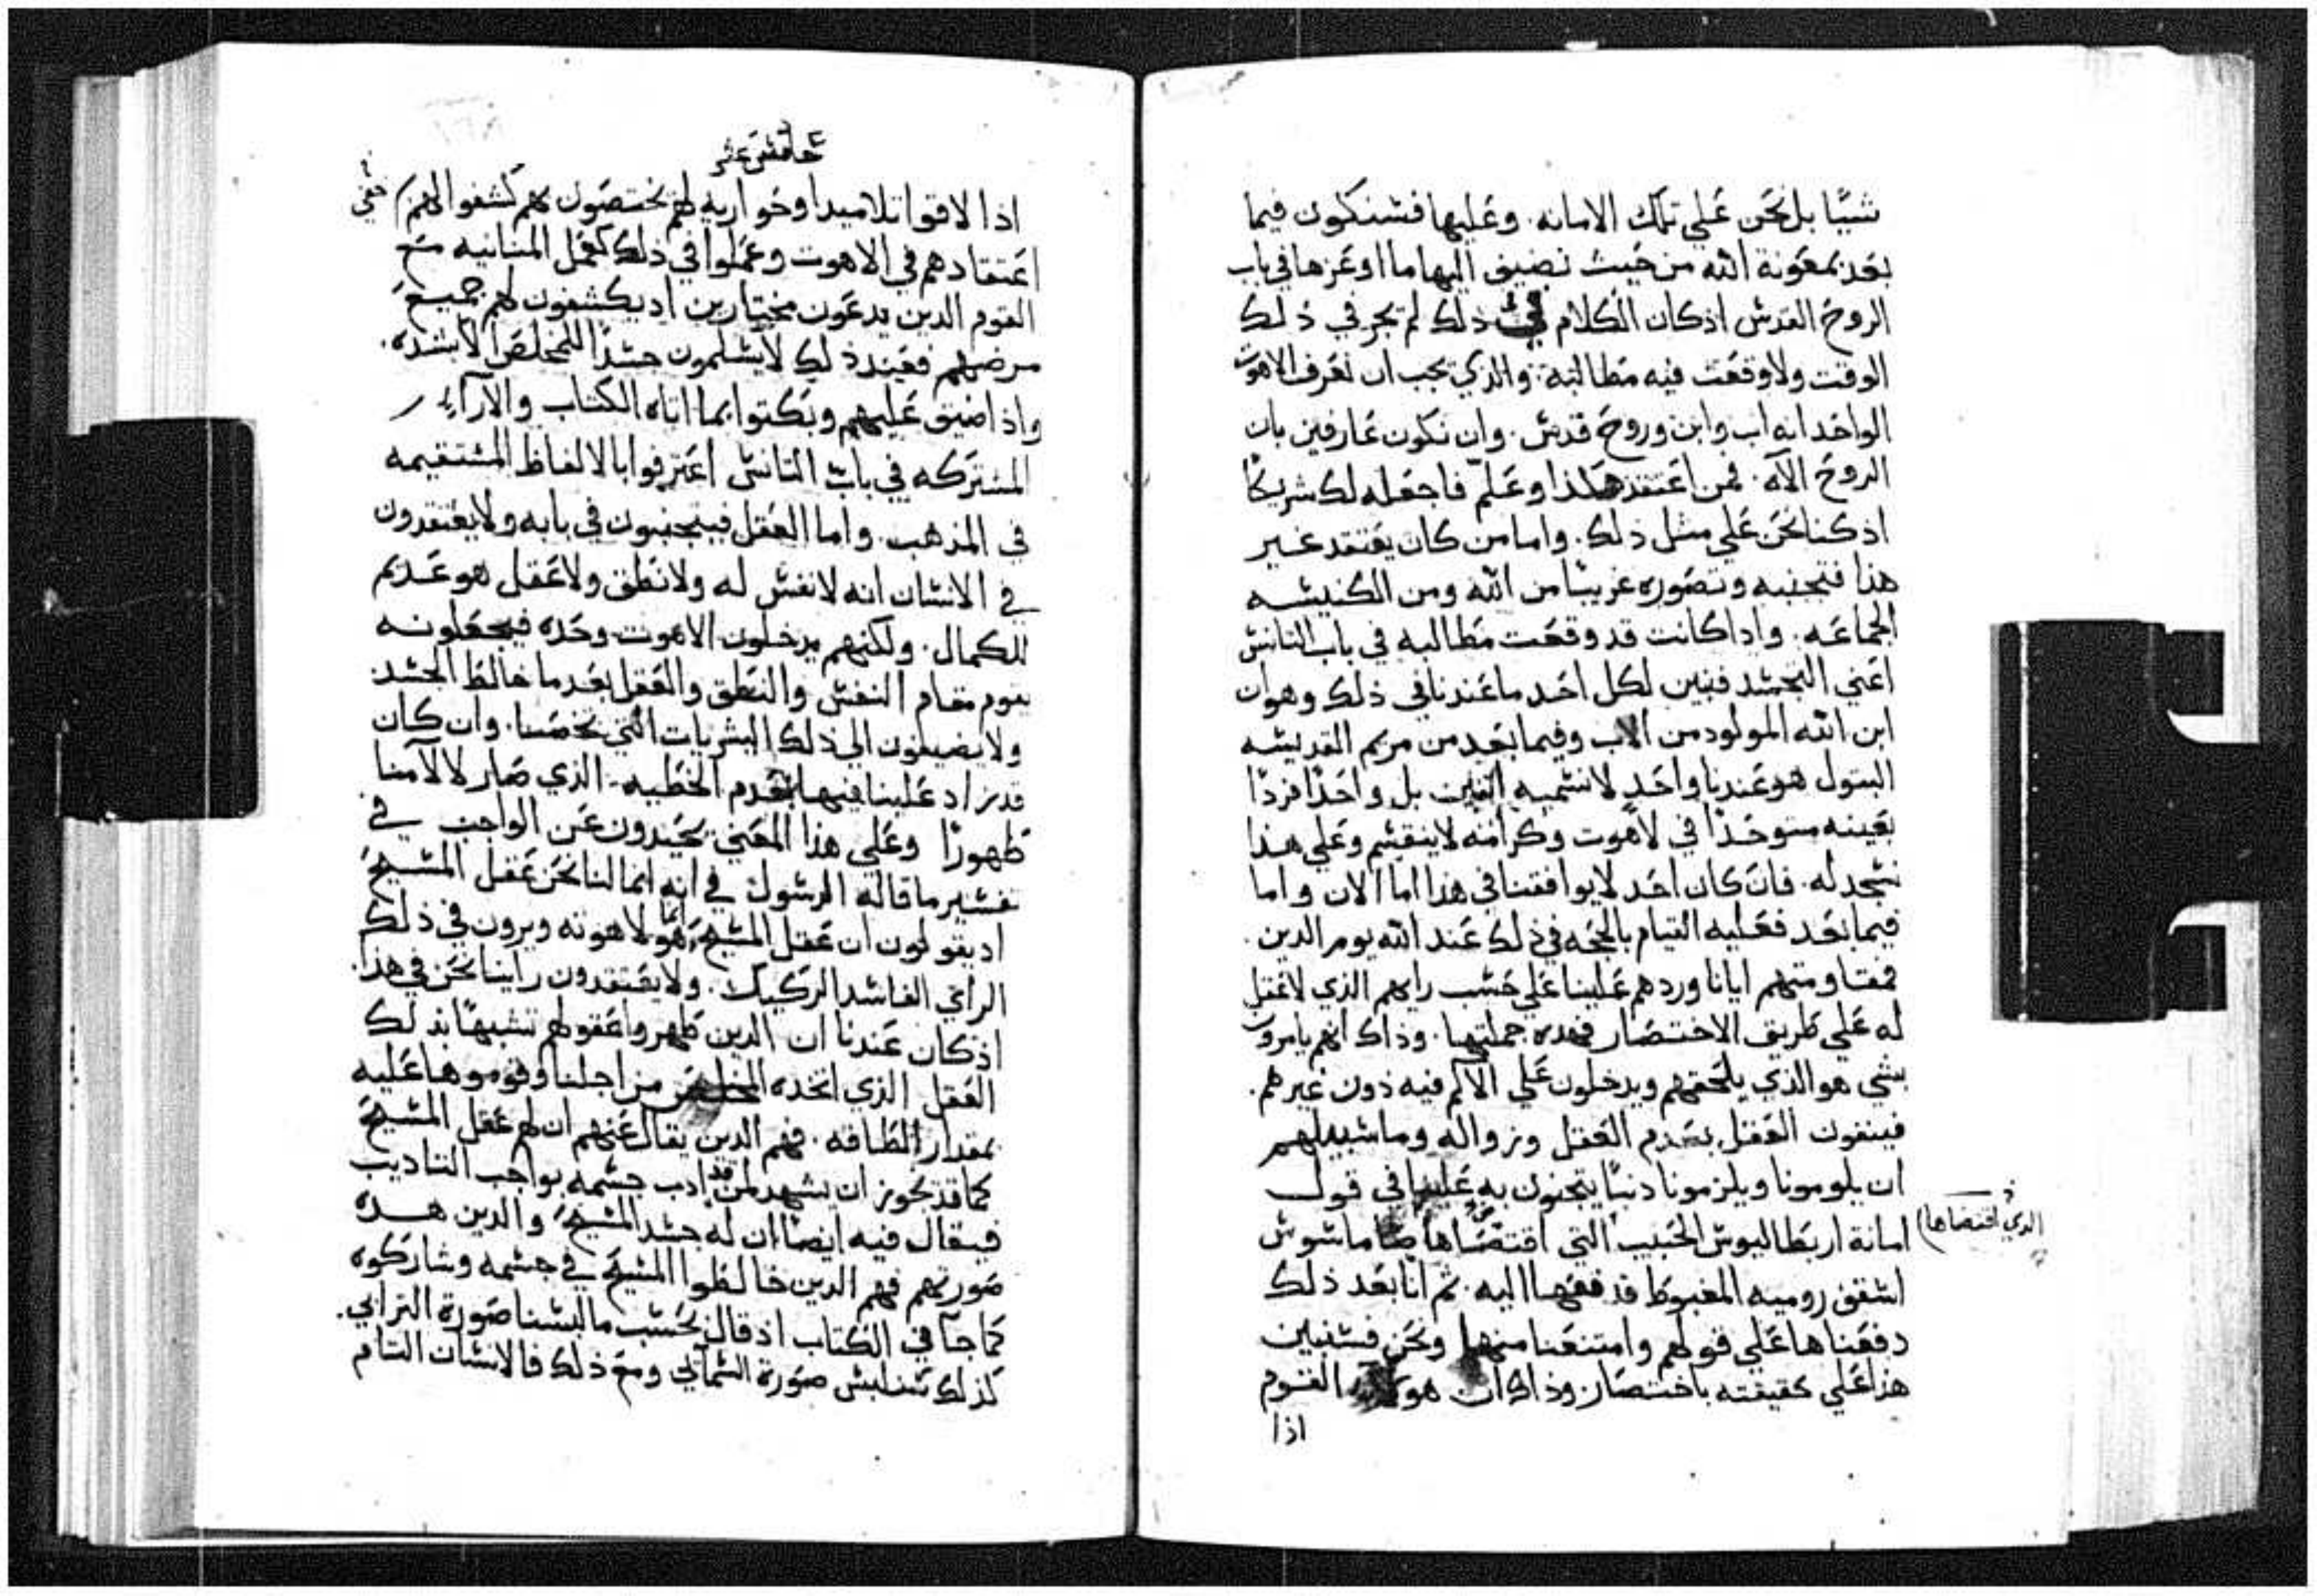 شيًا بل نحن علي تلك الامانه. وعليها فسنكون فيما
بعد بمعونة الله من حيث نضيف اليها ما اوعزها في باب
الروح القدس اذ كان الكلام في ذلك لم يجر في ذلك
الوقت ولا وقعت فيه مطالبة. والذي يجب ان نعرف الاهوت
الواحد انه اب وابن وروح قدس. وان نكون عارفين بان
الروح الاه. فمن اعتقد هكذا وعلم فاجعله لك شريكًا
اذ كنا نحن علي مثل ذلك. واما من كان يعتقد غير
هذا فتجنبه وتصوره غريبًا من الله ومن الكنيسه
الجماعه. واذا كانت قد وقعت مطالبه في باب التانس
اعني التجسد فنبين لكل احد ما عندنا في ذلك وهو ان
ابن الله المولود من الاب وفيما بعد من مريم القديسه
البتول هو عندنا واحد لا نسميه اثنين بل واحدًا فردًا
بعينه متوحدًا في لاهوت وكرامه لا ينقسم وعلي هذا
نسجد له. فان كان احد لا يوافقنا في هذا اما الان واما
فيما بعد فعليه القيام بالحجه في ذلك عند الله يوم الدين.
فمقاومتهم ايانا وردهم علينا علي حسب رايهم الذي لا عقل
له علي طريق الاختصار فهده جملتها. وذاك انهم يامرون
بشي هو الذي يلحقهم ويدخلون علي الالم فيه دون غيرهم.
فينفون العقل بعدم العقل وزواله وما سبيلهم
ان يلومونا ويلزمونا دنبًا يتجنون به علينا في قول
امانة اربطاليوس الحبيب التي اقتصاها داماسوس
الدي اقتضاها
اسقف روميه المغبوط فدفعها اليه. ثم انا بعد ذلك
دفعناها علي قولهم وامتنعنا منها ونحن فسنبين
هذا علي حقيقته باختصار وذاك ان هولاء القوم
اذا
خامس عشر
اذا لاقوا تلاميدا وحواريه لهم يختصون بهم كشفوا لهم خفي
اعتقادهم في الاهوت وعملوا في ذلك كعمل المنانيه مع
القوم الدين يدعون مختارين اد يكشفون لهم جميع
مرضهم فعند ذلك لا يسلمون جسدًا للمخلص الا بشده.
واذا ضيق عليهم وبكتوا بما اتاه الكتاب والآراء
المشتركه في باب التانس اعترفوا بالالفاظ المستقيمه
في المذهب. واما العقل فيتجنبون في بابه ولا يعتقدون
في الانسان انه لا نفس له ولا نطق ولا عقل هو عديم
للكمال. ولكنهم يدخلون الاهوت وحده فيجعلونه
يقوم مقام النفس والنطق والعقل بعد ما خالط الجسد
ولا يضيفون الي ذلك البشريات التي تخصنا. وان كان
قد زاد علينا فيها بعدم الخطيه. الذي صار لالآمنا
طهورًا وعلي هذا المعني يحيدون عن الواجب في
تفسير ما قاله الرسول في انه انما لنا نحن عقل المسيح
اد يقولون ان عقل المسيح انما هو لاهوته ويرون في ذلك
الراي الفاسد الركيك. ولا يعتقدون راينا نحن في هذا.
اذ كان عندنا ان الدين طهروا عقولهم تشبهًا بذلك
العقل الذي اتخده المخلص من اجلنا وقوموها عليه
بمقدار الطاقه. فهم الدين يقال عنهم ان لهم عقل المسيح
كما قد يجوز ان يشهد لمن قد ادب جسمه بواجب التاديب
فيقال فيه ايضًا ان له جسد المسيح والدين هده
صورتهم فهم الدين خالطوا المسيح في جسمه وشاركوه
كما جآ في الكتاب اذ قال بحسب ما لبسنا صورة الترابي.
كذلك سنلبس صورة السمآئي ومع ذلك فالانسان التام